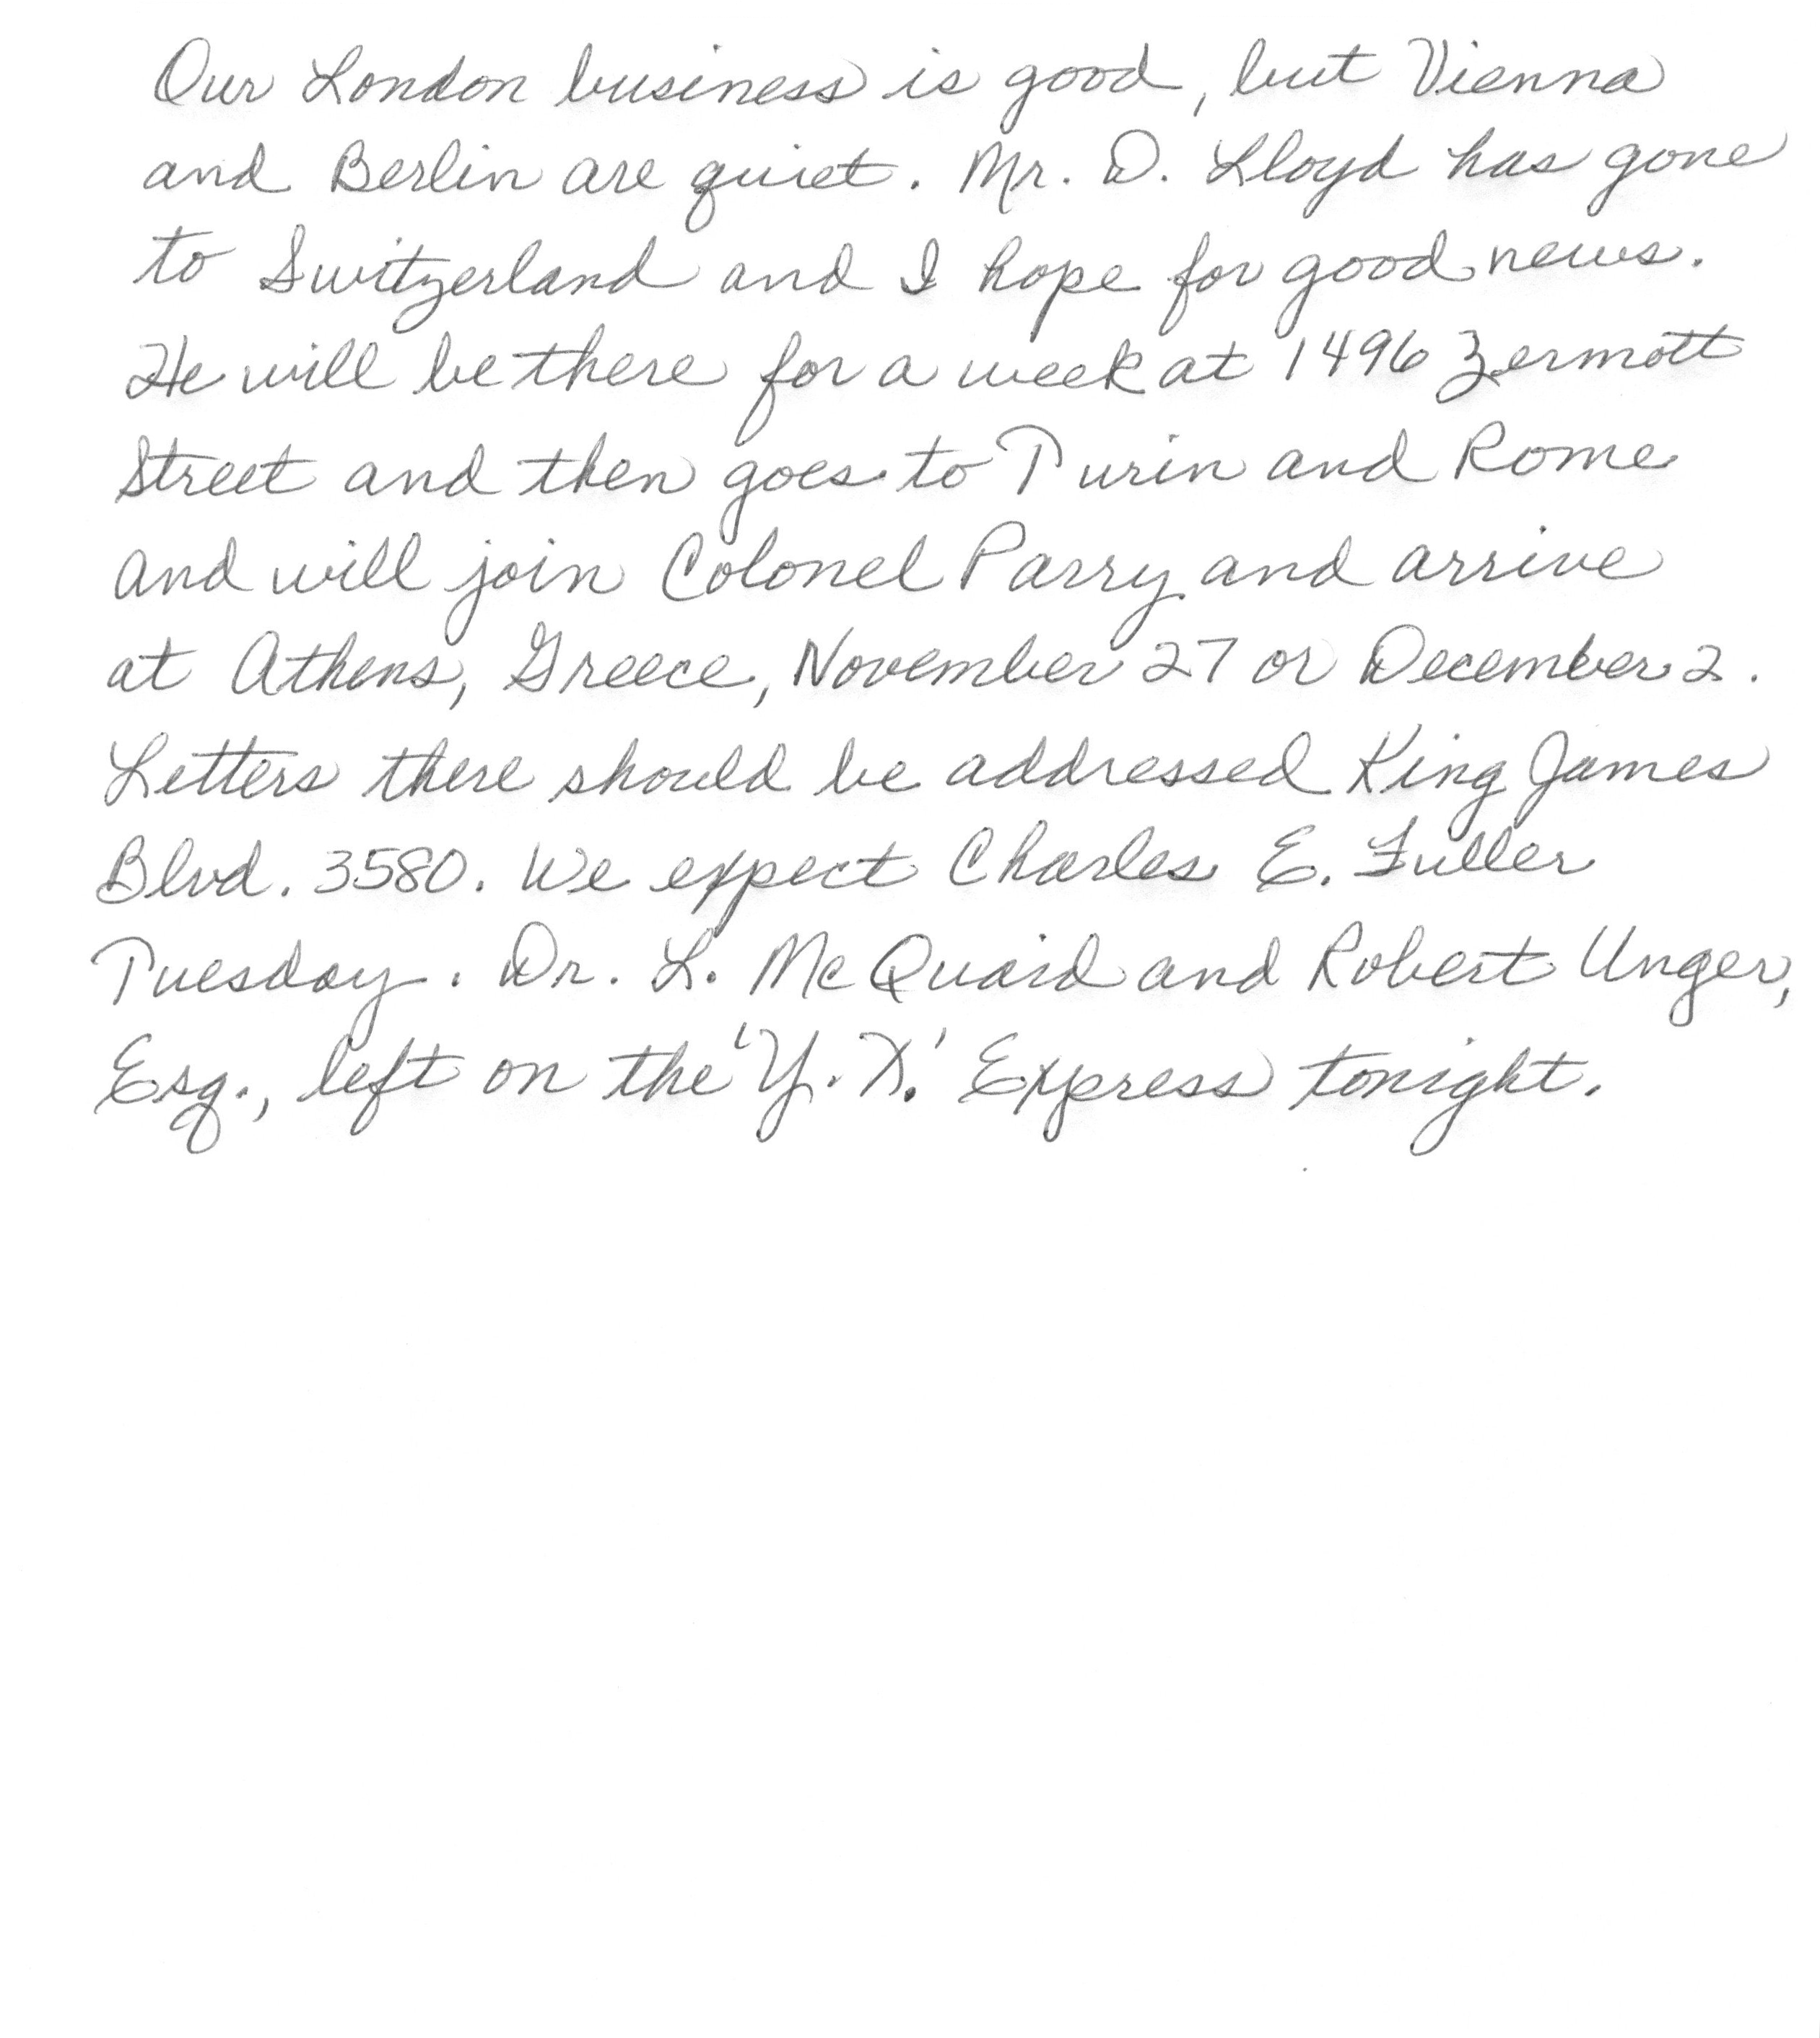 Our London business is good, but Vienna
and Berlin are quiet. Mr. D. Lloyd has gone
to Switzerland and I hope for good news.
He will be there for a week at 1496 Zermott
Street and then goes to Turin and Rome
and will join Colonel Parry and arrive
at Athens, Greece, November 27 or December 2.
Letters there should be addressed King James
Blvd. 3580. We expect Charles E. Fuller
Tuesday. Dr. L. McQuaid and Robert Unger,
Esq., left on the 'Y. X.' Express tonight.